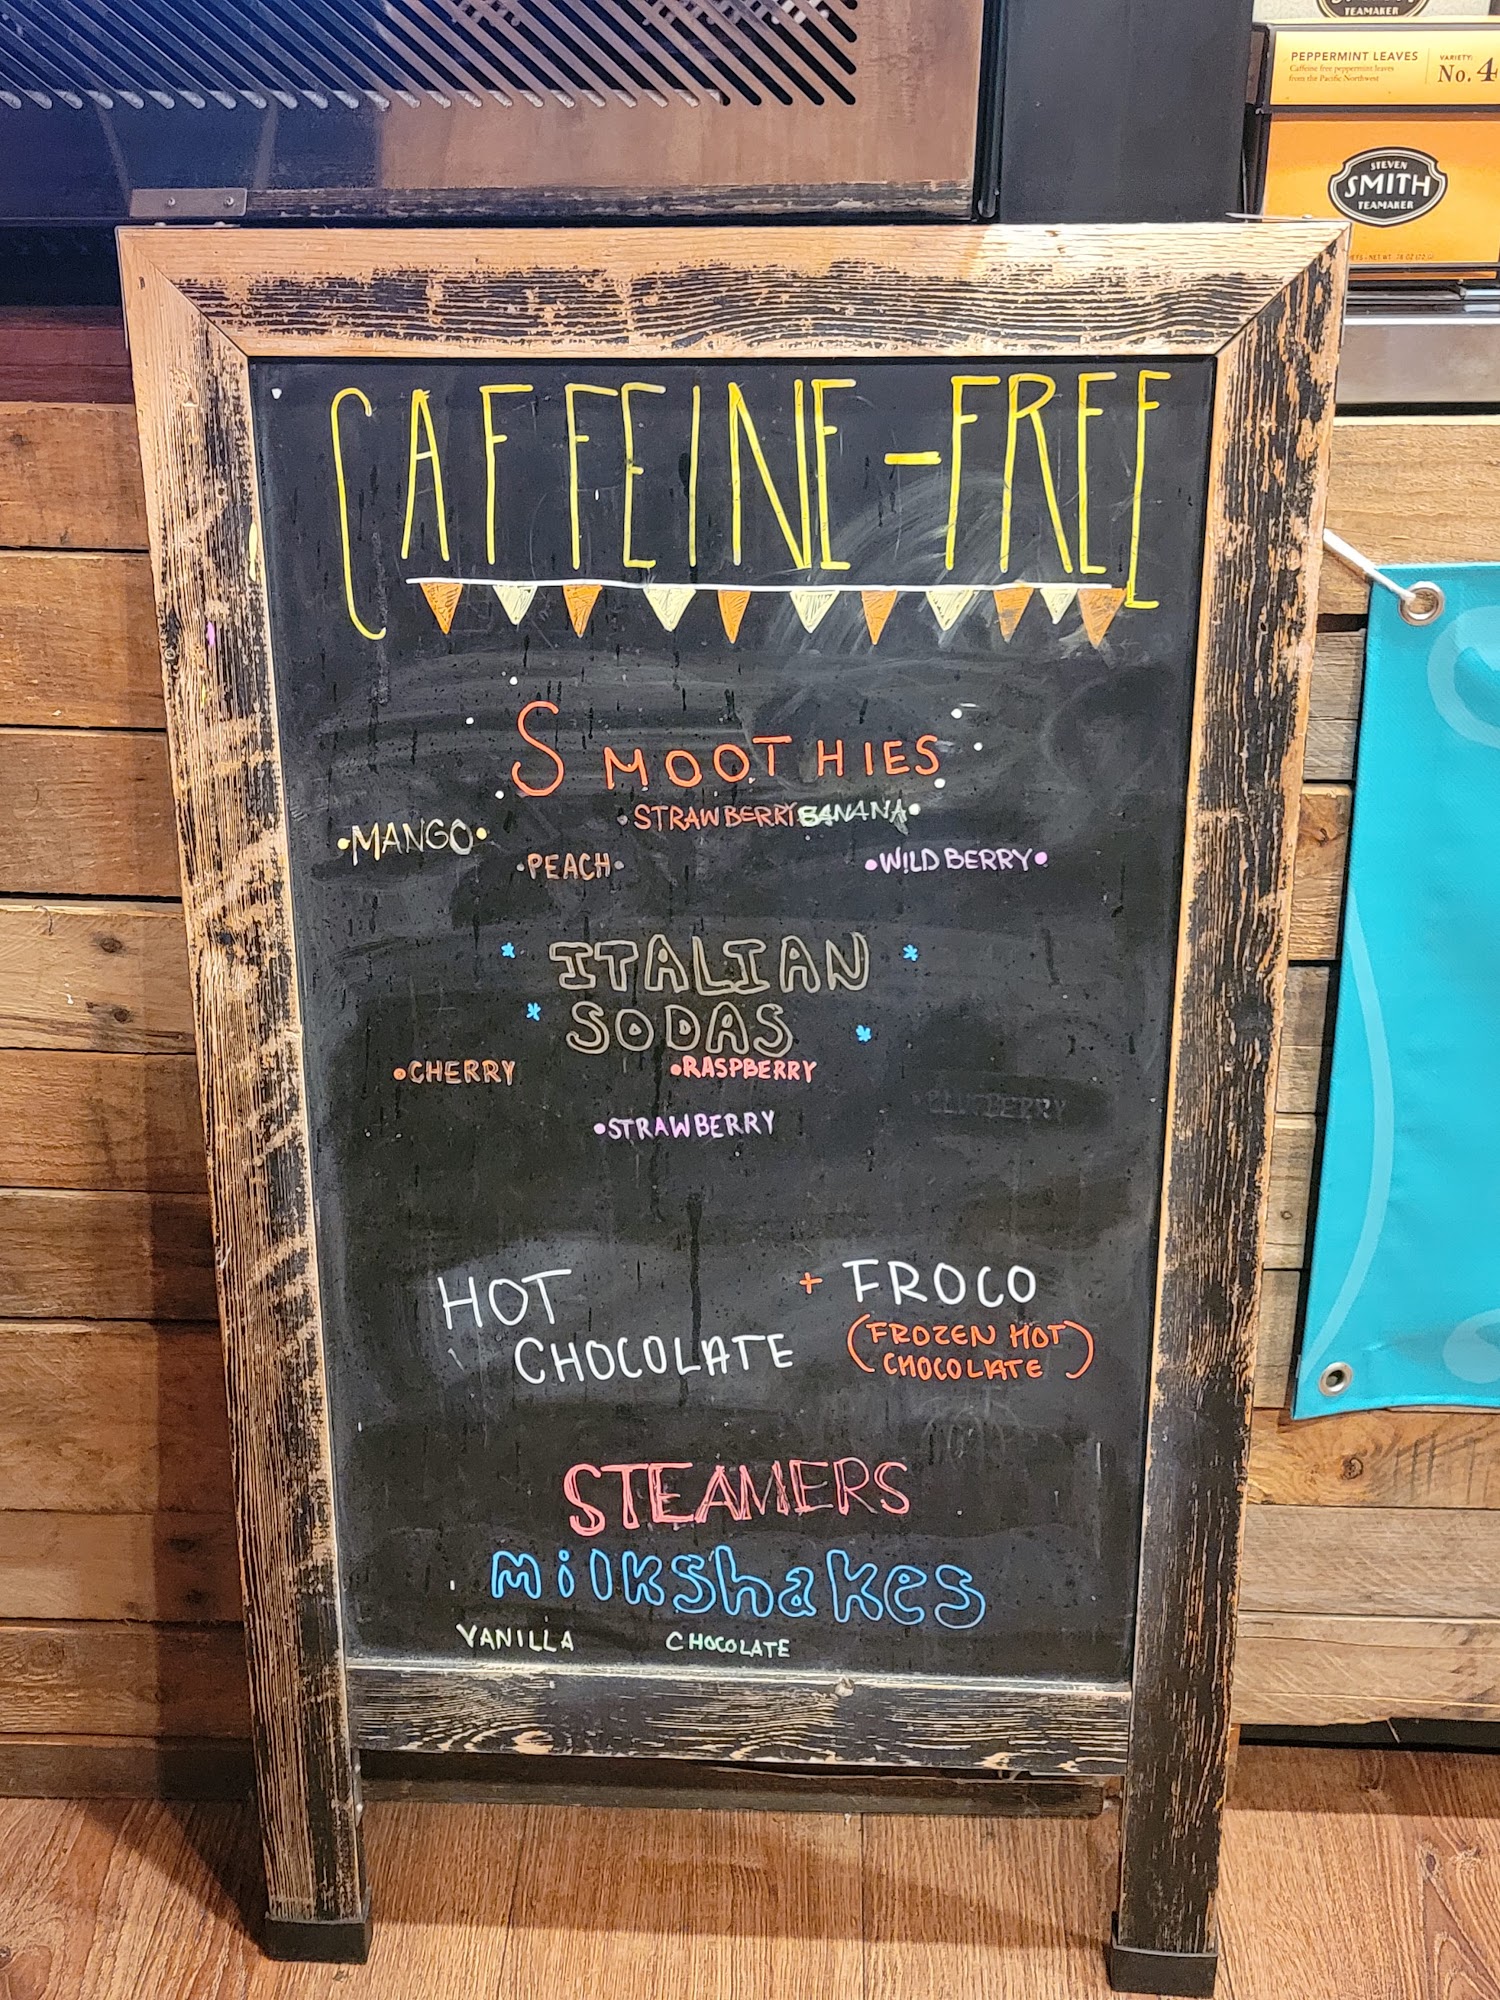 TEAMAKER
PEPPERMINT LEAVES
Caffeine free peppermint leaves
from the Pacific Northwest
VARIETY:
No. 4
STEVEN
SMITH
TEAMAKER
CAFFEINE-FREE
SMOOTHIES
•MANGO•
•STRAWBERRY BANANA•
•PEACH•
•WILD BERRY•
ITALIAN
SODAS
•CHERRY
•RASPBERRY
•BLUEBERRY
•STRAWBERRY
HOT
CHOCOLATE
+ FROCO
(FROZEN HOT
CHOCOLATE)
STEAMERS
milkshakes
VANILLA
CHOCOLATE